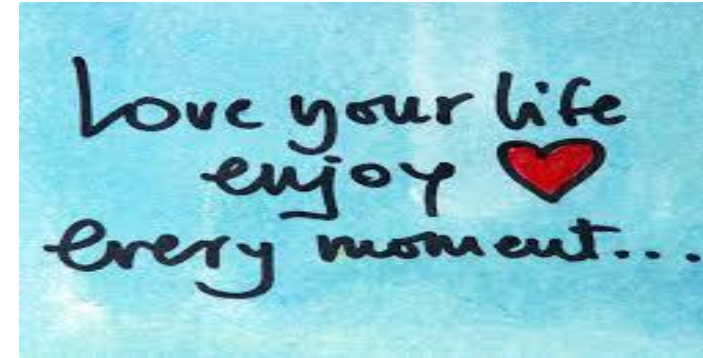 Love your life
enjoy
every moment...